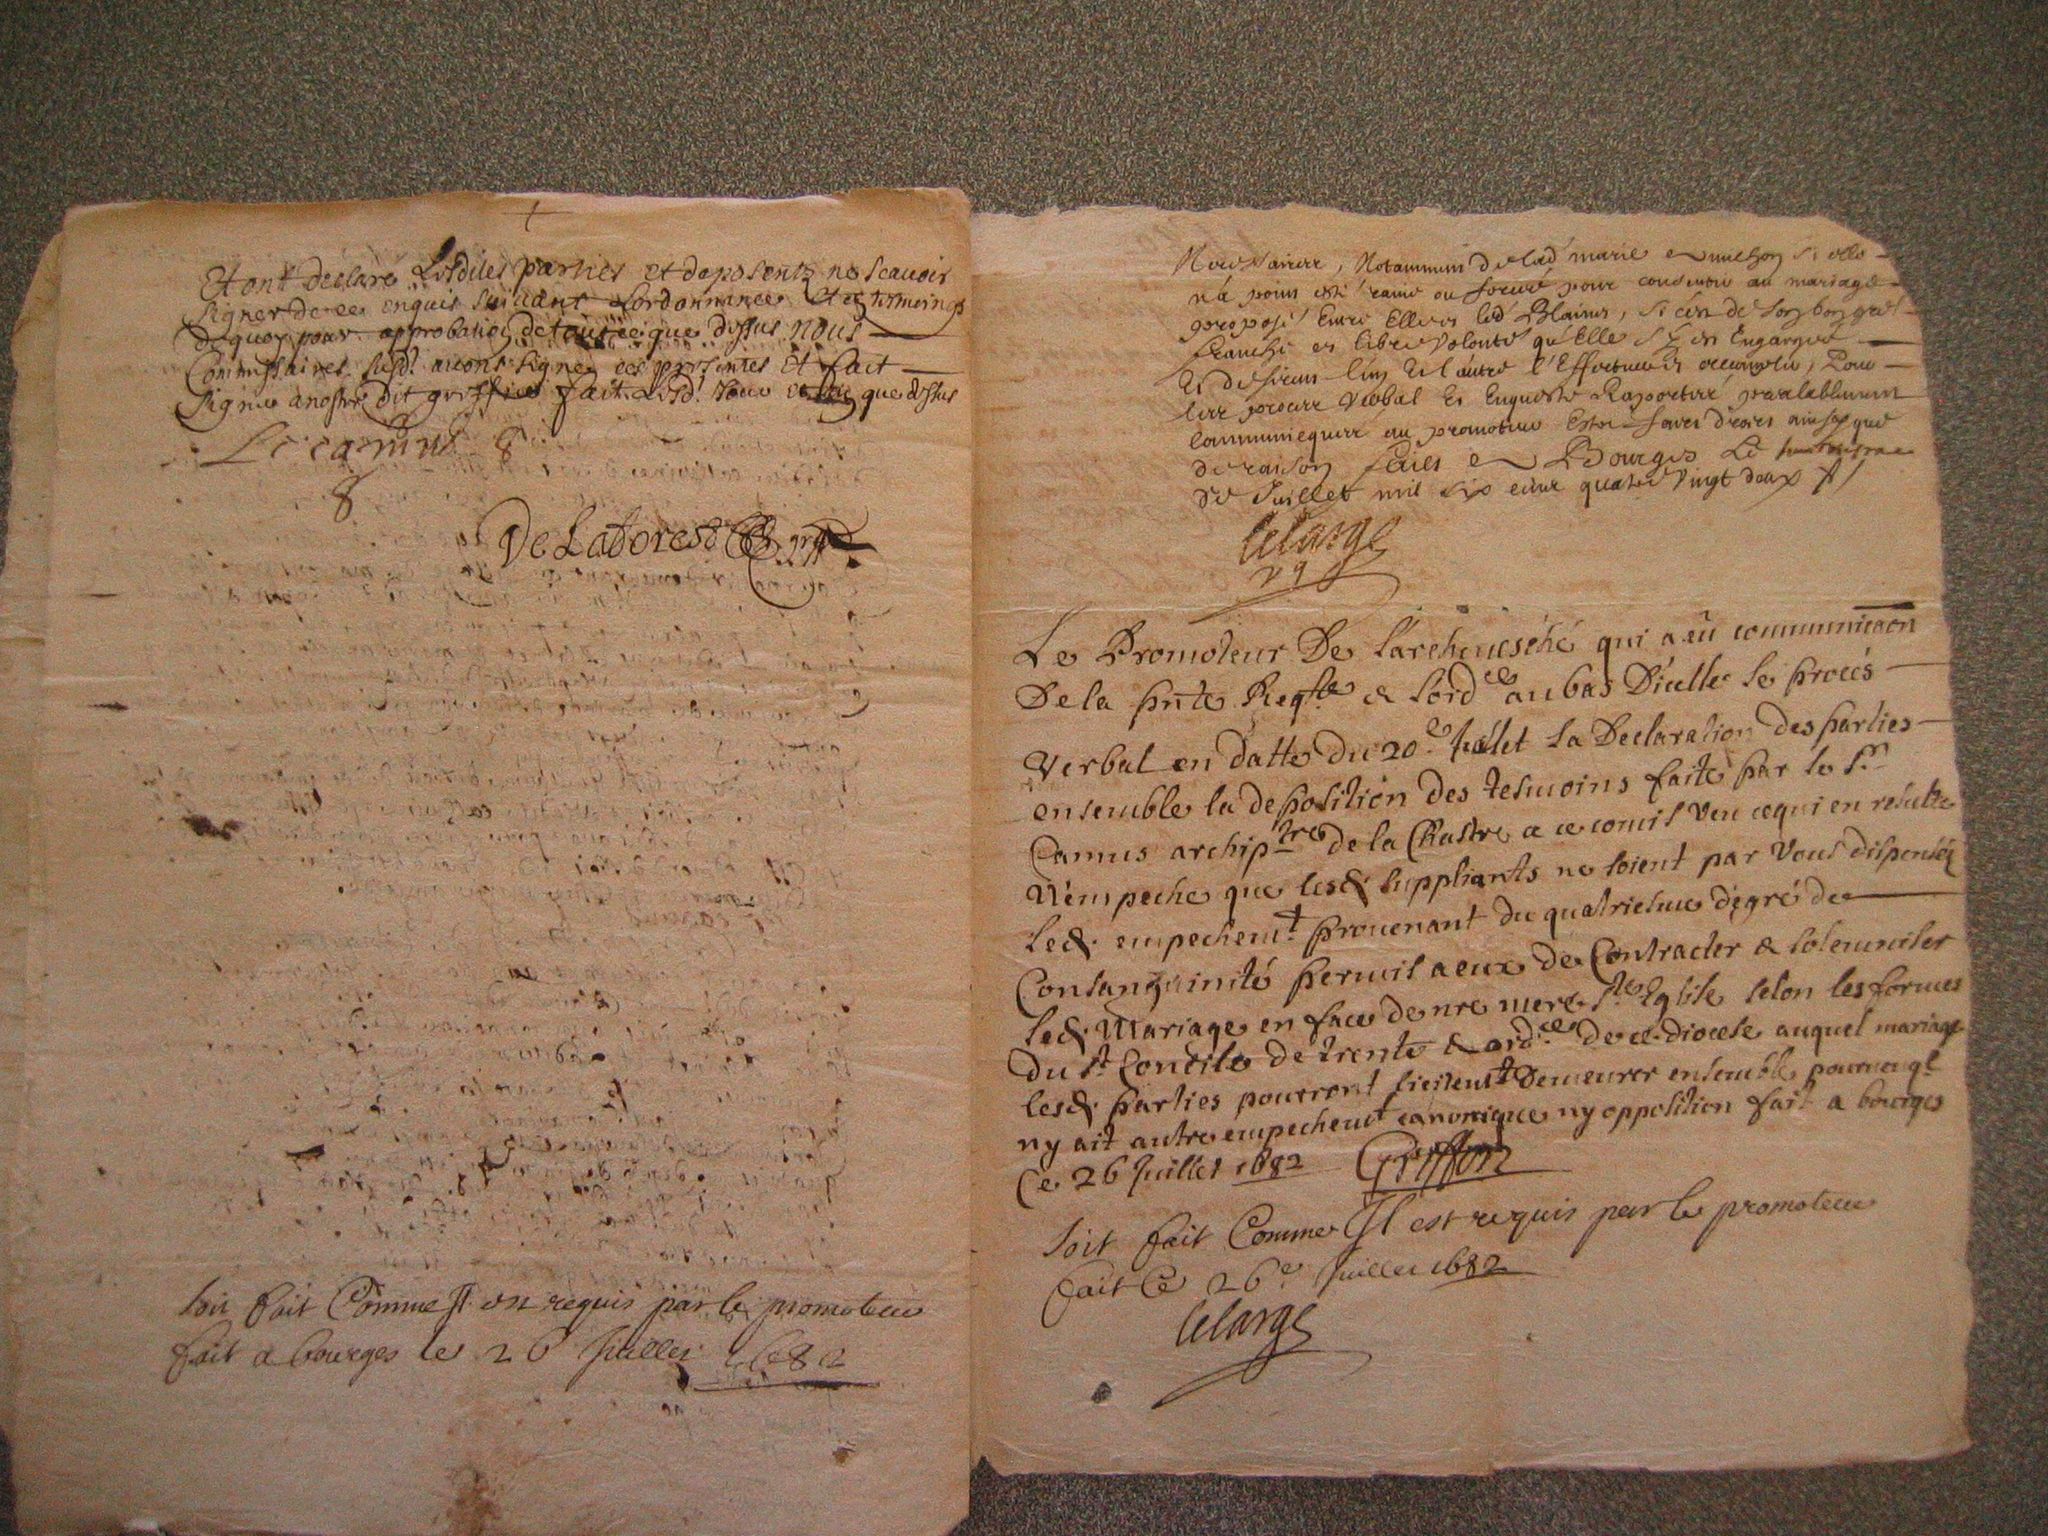 Et ont déclaré Lesdites parties et deposentz ne scauoir
signer de ce enquis suiuant Lordonnance et es tesmoings
de quoy pour approbation de tout ce que dessus nous
Commissaires susd. auons signez ces presentes Et fait
signer a nostre dit greffier fait Lesd. Jour et an que dessus
Le camus
De Laforest
soit fait Comme Il est requis par le promoteur
fait a bourges le 26 Juillet 1682
Necessaires, Notamment de lad marie si elle
n'a point esté rauie ou forcée pour consentir au mariage
proposé Entre Elle et led Blainé, si c'est de son bon gré
franche et libre Volonté qu'Elle s'y est Engangée
Et desirent l'un et l'autre l'Effectuer et accomplir, Pour
leur procez Verbal Et Enqueste Raportéz prealablement
Communiequéz au promoteur Estre faict droict ainsy que
de raison faict a Bourges Le
de Juillet mil six cent quatre Vingt deux
lelarge
vg
Le Promoteur De Larcheuesché qui a eû communicaon
De la pnte Reqte & lordce au bas D'icelle le procés
Verbal en datte du 20e Juillet La Declaration des parties
ensemble la deposition des tesmoins faite par le Sr
Camus archiptre de la Chastre a ce comis Veu ce qui en resulte
N'empeche que lesd. suppliants ne soient par Vous dispenséz
led. empechemt prouenant du quatriesme dégré de
Consanguinité permis a eux de Contracter & solemniser
led. Mariage en face de nre mere Ste Eglise selon les formes
du St Concile de trente & ordce de ce diocese auquel mariage
lesd. parties pourront licitemt Demeurer ensemble pourueu ql
ny ait autre empechemt canonique ny opposition fait a bourges
Ce 26 Juillet 1682 Griffon
Soit fait Comme Il est requis par le promoteur
fait Ce 26e Juillet 1682
lelarge